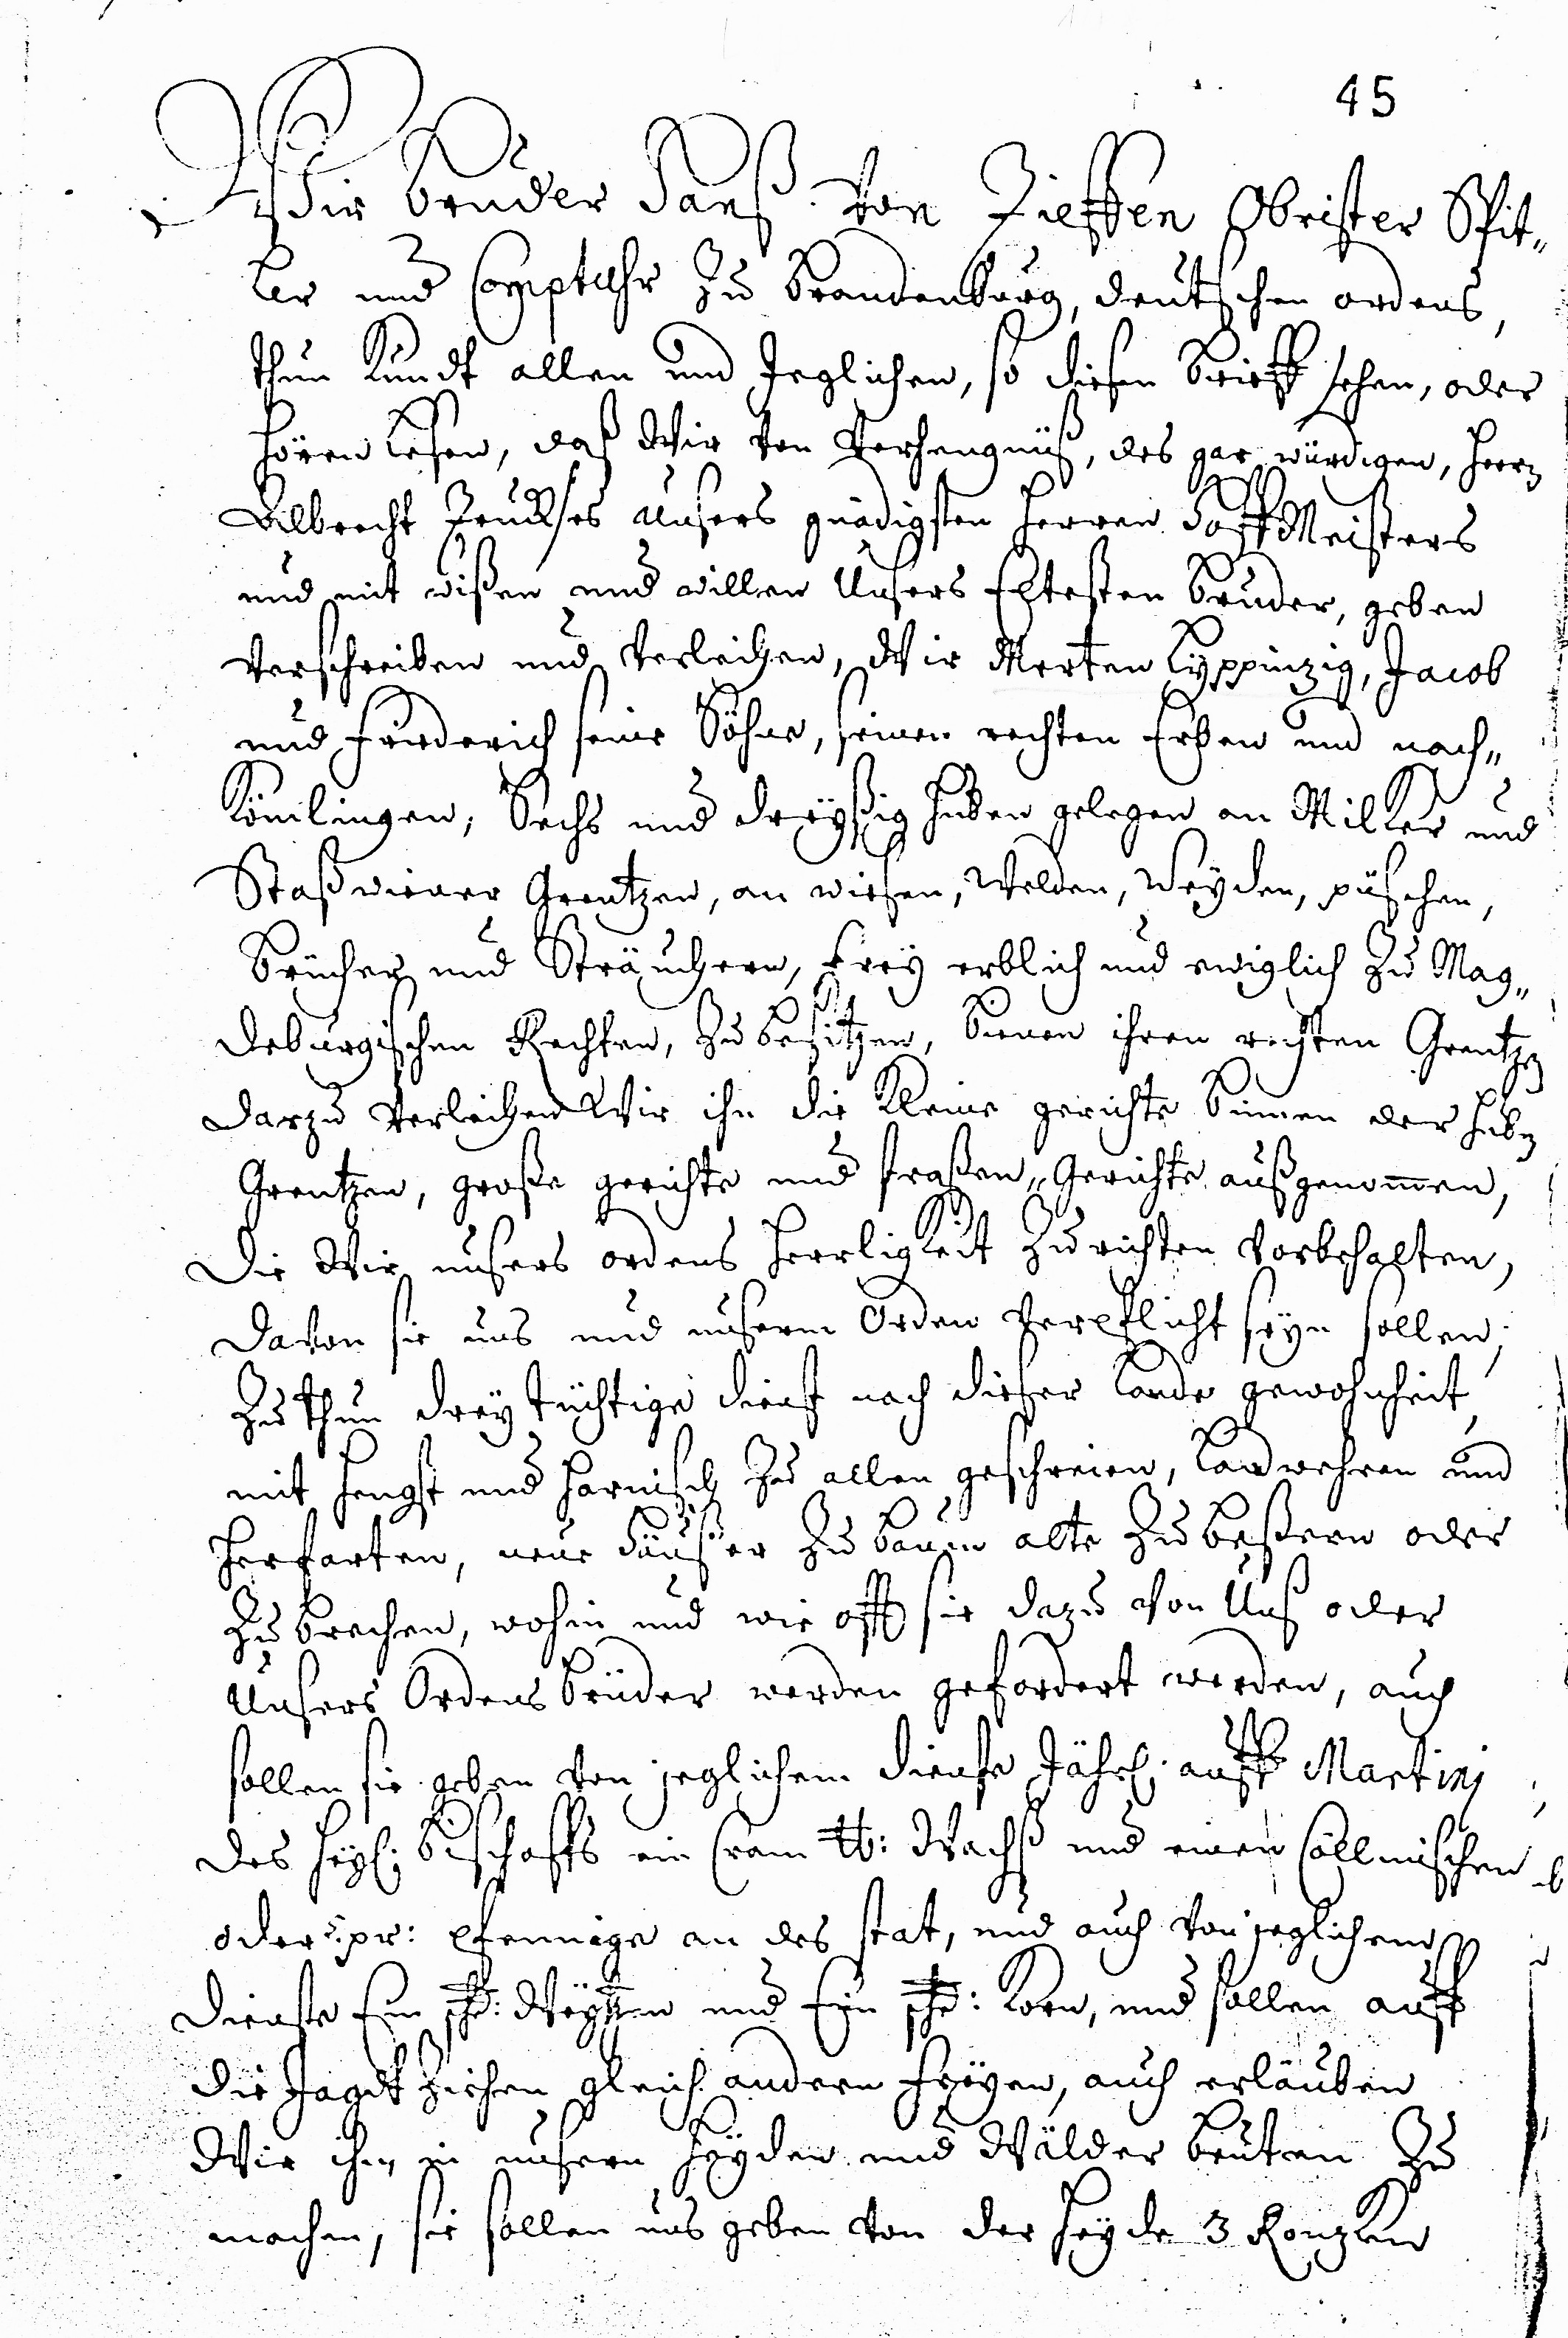 45
Wir bruder Hanß von Tieffen Obrister Spit„
ler und Compteuhr zu brandenburg, deutschen ordens,
thun Kundt allen und Jeglichen, so diesen brieff sehen, oder
hören lesen, daß Wir von Verhengnüß, des gar würdigen, Herrn
Albrecht unsers gnädigsten Herren Hoff Meisters
und mit wißen und willen Unsers Eltesten bruder, geben
Verschreiben und Verleihen, Wir Merten Lyppinzig, Jacob
und Friederich seine Söhne, seinen rechten Erben und nach„
Kömlingen, Sechs und dreyßig huben gelegen an Milker und
Staßwiner Grentzen, an wiesen, Welden, Weyden, püschen,
brücher und Sträuchern, frey erblich und ewiglich zu Mag„
deburgischen Rechten, zu besitzen, binnen ihren rechten Grentzen
darzu Verleihen Wir ihn die Kleine gerichte binnen der huben
Grentzen, große gerichte und straßen„Gerichte außgenommen,
die Wir unsers ordens Herrligkeit zu richten vorbehalten,
davon sie uns und unserm Orden Verpflicht seyn sollen;
zu thun drey tüchtige dienst nach dieser Lande gewohnheit,
mit hengst und harnisch zu allen geschreien, Landwehren und
herfarten, neue Häußer zu bauen alte zu beßern oder
zu brechen, wohin und wie offt sie dazu von Unß oder
Unsers Ordens brüder werden gefordert werden, auch
sollen sie geben von jeglichem dienste Jährl: auff Martini
des heyl: bischoffs ein Cram ℔: Wachß und einen Cöllmischen
oder pr: pfennige an des stat, und auch von jeglichem
dienste Ein schf: Weytzen und Eyn schf: Korn, und sollen auff
die Jagdt ziehen gleich andern freyen, auch erläuben
Wir ihn in unsern heyden und Wälder beuten zu
machen, sie sollen uns geben von der heyde 3